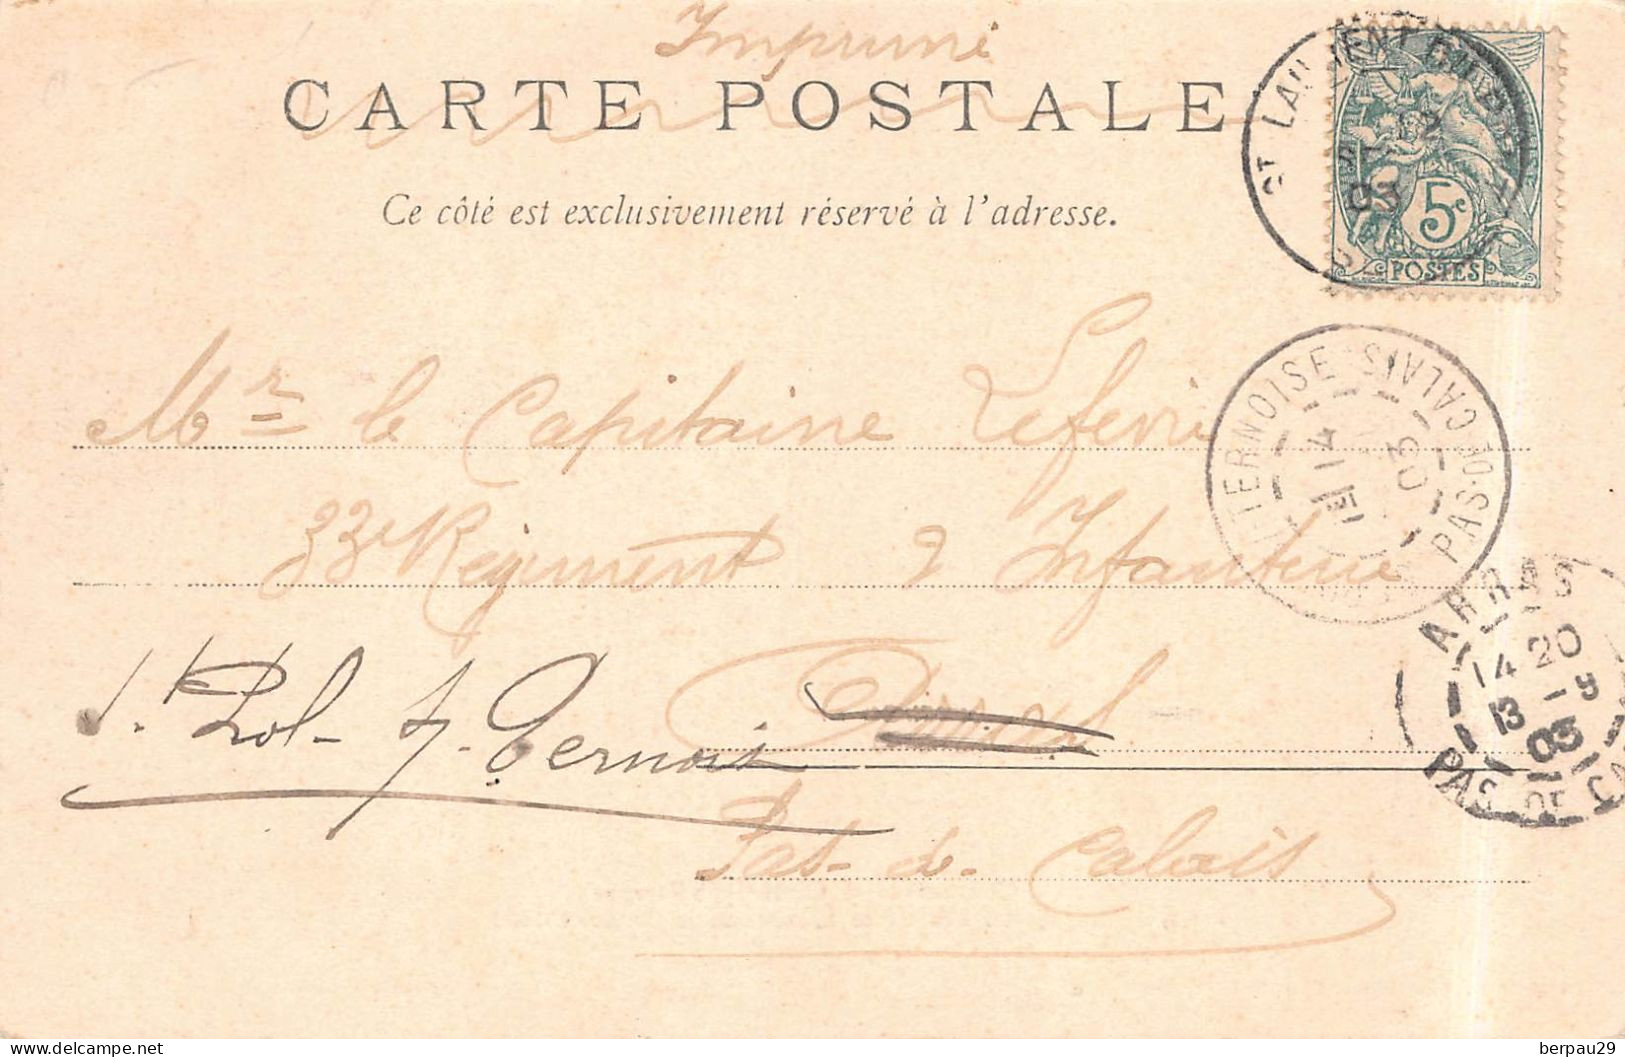 Imprimé
CARTE POSTALE
Ce côté est exclusivement réservé à l'adresse.
5c
POSTES
03
Mr le Capitaine Lefevre
33e Régiment d'Infanterie
Arras
St. Pol- s/ Ternoise
Pas-de-Calais
TERNOISE
PAS-DE-CALAIS
14
03
ARRAS
14 20
13 -9
03
PAS-DE-CA
berpau29
delcampe.net